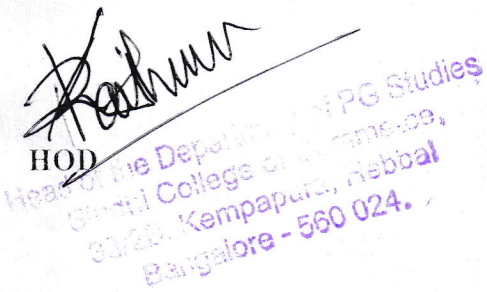 HOD
Head of the Department of PG Studies
Sindhi College of Commerce,
33/2B, Kempapura, Hebbal
Bangalore - 560 024.